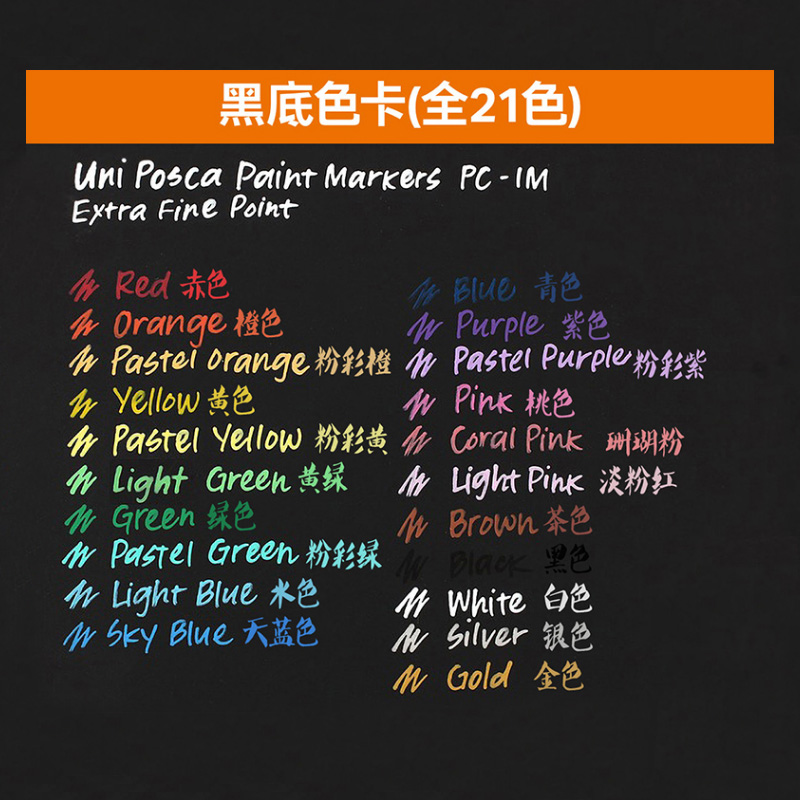 黑底色卡(全21色)
Uni Posca Paint Markers PC-1M
Extra Fine Point
Red 赤色
Orange 橙色
Pastel Orange 粉彩橙
Yellow 黄色
Pastel Yellow 粉彩黄
Light Green 黄绿
Green 绿色
Pastel Green 粉彩绿
Light Blue 水色
Sky Blue 天蓝色
Blue 青色
Purple 紫色
Pastel Purple 粉彩紫
Pink 桃色
Coral Pink 珊瑚粉
Light Pink 淡粉红
Brown 茶色
Black 黑色
White 白色
Silver 银色
Gold 金色